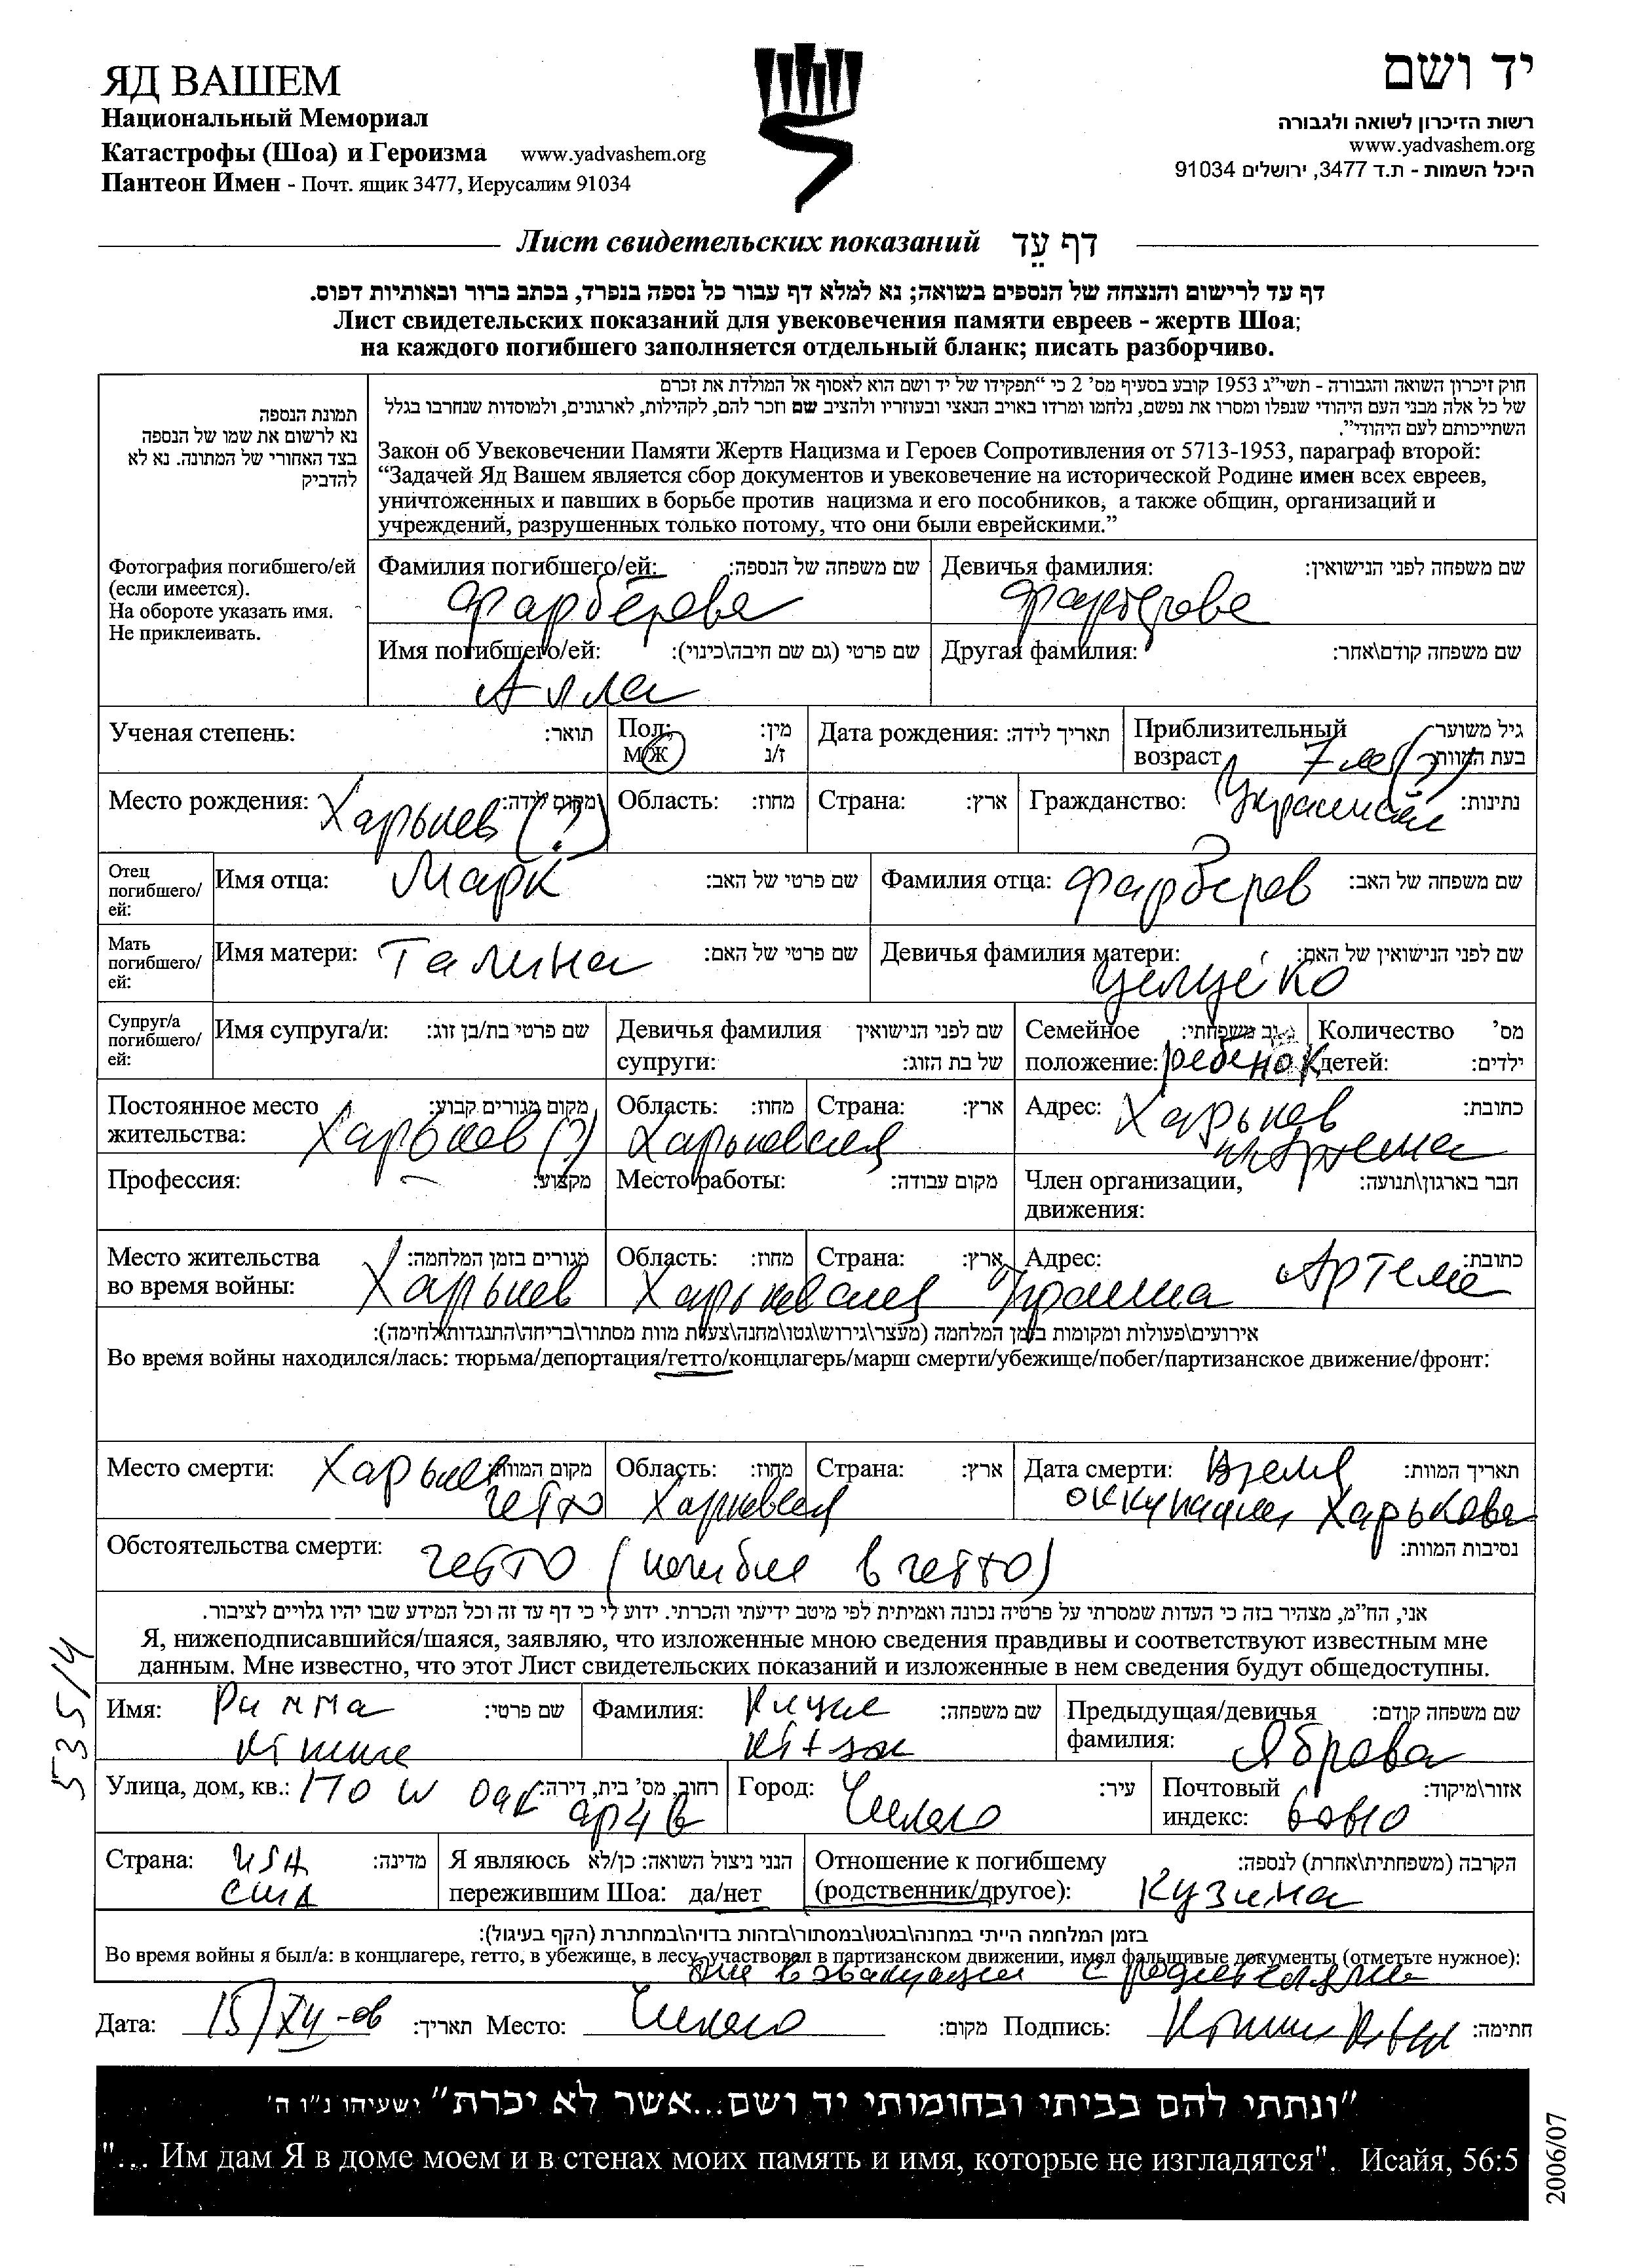 ЯД ВАШЕМ
Национальный Мемориал
Катастрофы (Шоа) и Героизма www.yadvashem.org
Пантеон Имен - Почт. ящик 3477, Иерусалим 91034
יד ושם
רשות הזיכרון לשואה ולגבורה
www.yadvashem.org
היכל השמות - ת.ד 3477, ירושלים 91034
Лист свидетельских показаний דף עֵד
דף עד לרישום והנצחה של הנספים בשואה; נא למלא דף עבור כל נספה בנפרד, בכתב ברור ובאותיות דפוס.
Лист свидетельских показаний для увековечения памяти евреев - жертв Шоа;
на каждого погибшего заполняется отдельный бланк; писать разборчиво.
תמונת הנספה
נא לרשום את שמו של הנספה
בצד האחורי של המתונה. נא לא
להדביק
Фотография погибшего/ей
(если имеется).
На обороте указать имя.
Не приклеивать.
חוק זיכרון השואה והגבורה - תשי"ג 1953 קובע בסעיף מס' 2 כי "תפקידו של יד ושם הוא לאסוף אל המולדת את זכרם
של כל אלה מבני העם היהודי שנפלו ומסרו את נפשם, נלחמו ומרדו באויב הנאצי ובעוזריו ולהציב שם וזכר להם, לקהילות, לארגונים, ולמוסדות שנחרבו בגלל
השתייכותם לעם היהודי".
Закон об Увековечении Памяти Жертв Нацизма и Героев Сопротивления от 5713-1953, параграф второй:
"Задачей Яд Вашем является сбор документов и увековечение на исторической Родине имен всех евреев,
уничтоженных и павших в борьбе против нацизма и его пособников, а также общин, организаций и
учреждений, разрушенных только потому, что они были еврейскими."
Фамилия погибшего/ей: שם משפחה של הנספה:
Фарберова
Девичья фамилия: שם משפחה לפני הנישואין:
Фарберова
Имя погибшего/ей: שם פרטי (גם שם חיבה\כינוי):
Алла
Другая фамилия: שם משפחה קודם\אחר:
Ученая степень: תואר:
Пол: מין:
м/ж ז/נ
Дата рождения: תאריך לידה:
Приблизительный גיל משוער
возраст 7 лет(?) בעת המוות:
Место рождения: Харьков (?) מקום לידה:
Область: מחוז:
Страна: ארץ:
Гражданство: Украинская נתינות:
Отец
погибшего/
ей:
Имя отца: Марк שם פרטי של האב:
Фамилия отца: Фарберов שם משפחה של האב:
Мать
погибшего/
ей:
Имя матери: Галина שם פרטי של האם:
Девичья фамилия матери: שם לפני הנישואין של האם:
Супруг/а
погибшего/
ей:
Имя супруга/и: שם פרטי בת/בן זוג:
Девичья фамилия שם לפני הנישואין
супруги: של בת הזוג:
Семейное מצב משפחתי:
положение: ребенок
Количество מס'
детей: ילדים:
Постоянное место מקום מגורים קבוע:
жительства: Харьков (?)
Область: מחוז:
Харьковская
Страна: ארץ:
Адрес: Харьков כתובת:
Артема
Профессия: – מקצוע:
Место работы: מקום עבודה:
Член организации, חבר בארגון\תנועה:
движения:
Место жительства מגורים בזמן המלחמה:
во время войны: Харьков
Область: מחוז:
Харьковская
Страна: ארץ:
Украина
Адрес: Артема כתובת:
אירועים\פעולות ומקומות בזמן המלחמה (מעצר\גירוש\גטו\מחנה\צעדת מוות מסתור\בריחה\התנגדות\לחימה):
Во время войны находился/лась: тюрьма/депортация/гетто/концлагерь/марш смерти/убежище/побег/партизанское движение/фронт:
Место смерти: Харьков מקום המוות:
гетто
Область: מחוז:
Харьковская
Страна: ארץ:
Дата смерти: Время תאריך המוות:
оккупации Харькова
Обстоятельства смерти: гетто (погибла в гетто) נסיבות המוות:
אני, הח"מ, מצהיר בזה כי העדות שמסרתי על פרטיה נכונה ואמיתית לפי מיטב ידיעתי והכרתי. ידוע לי כי דף עד זה וכל המידע שבו יהיו גלויים לציבור.
Я, нижеподписавшийся/шаяся, заявляю, что изложенные мною сведения правдивы и соответствуют известным мне
данным. Мне известно, что этот Лист свидетельских показаний и изложенные в нем сведения будут общедоступны.
Имя: Римма שם פרטי:
Фамилия: שם משפחה:
Предыдущая/девичья שם משפחה קודם:
фамилия:
Улица, дом, кв.: 170 W Oak רחוב, מס' בית, דירה:
Город: Чикаго עיר:
Почтовый אזור\מיקוד:
индекс: 60610
Страна: USA מדינה:
США
Я являюсь הנני ניצול השואה: כן/לא
пережившим Шоа: да/нет
Отношение к погибшему הקרבה (משפחתית\אחרת) לנספה:
(родственник/другое): Кузина
בזמן המלחמה הייתי במחנה\בגטו\במסתור\בזהות בדויה\במחתרת (הקף בעיגול):
Во время войны я был/а: в концлагере, гетто, в убежище, в лесу, участвовал в партизанском движении, имел фальшивые документы (отметьте нужное):
в эвакуации с родителями
Дата: 15/XII-06 תאריך: Место: Чикаго מקום: Подпись: חתימה:
"ונתתי להם בביתי ובחומותי יד ושם...אשר לא יכרת" ישעיהו נ"ו ה'
"... Им дам Я в доме моем и в стенах моих память и имя, которые не изгладятся". Исайя, 56:5
535/4
2006/07